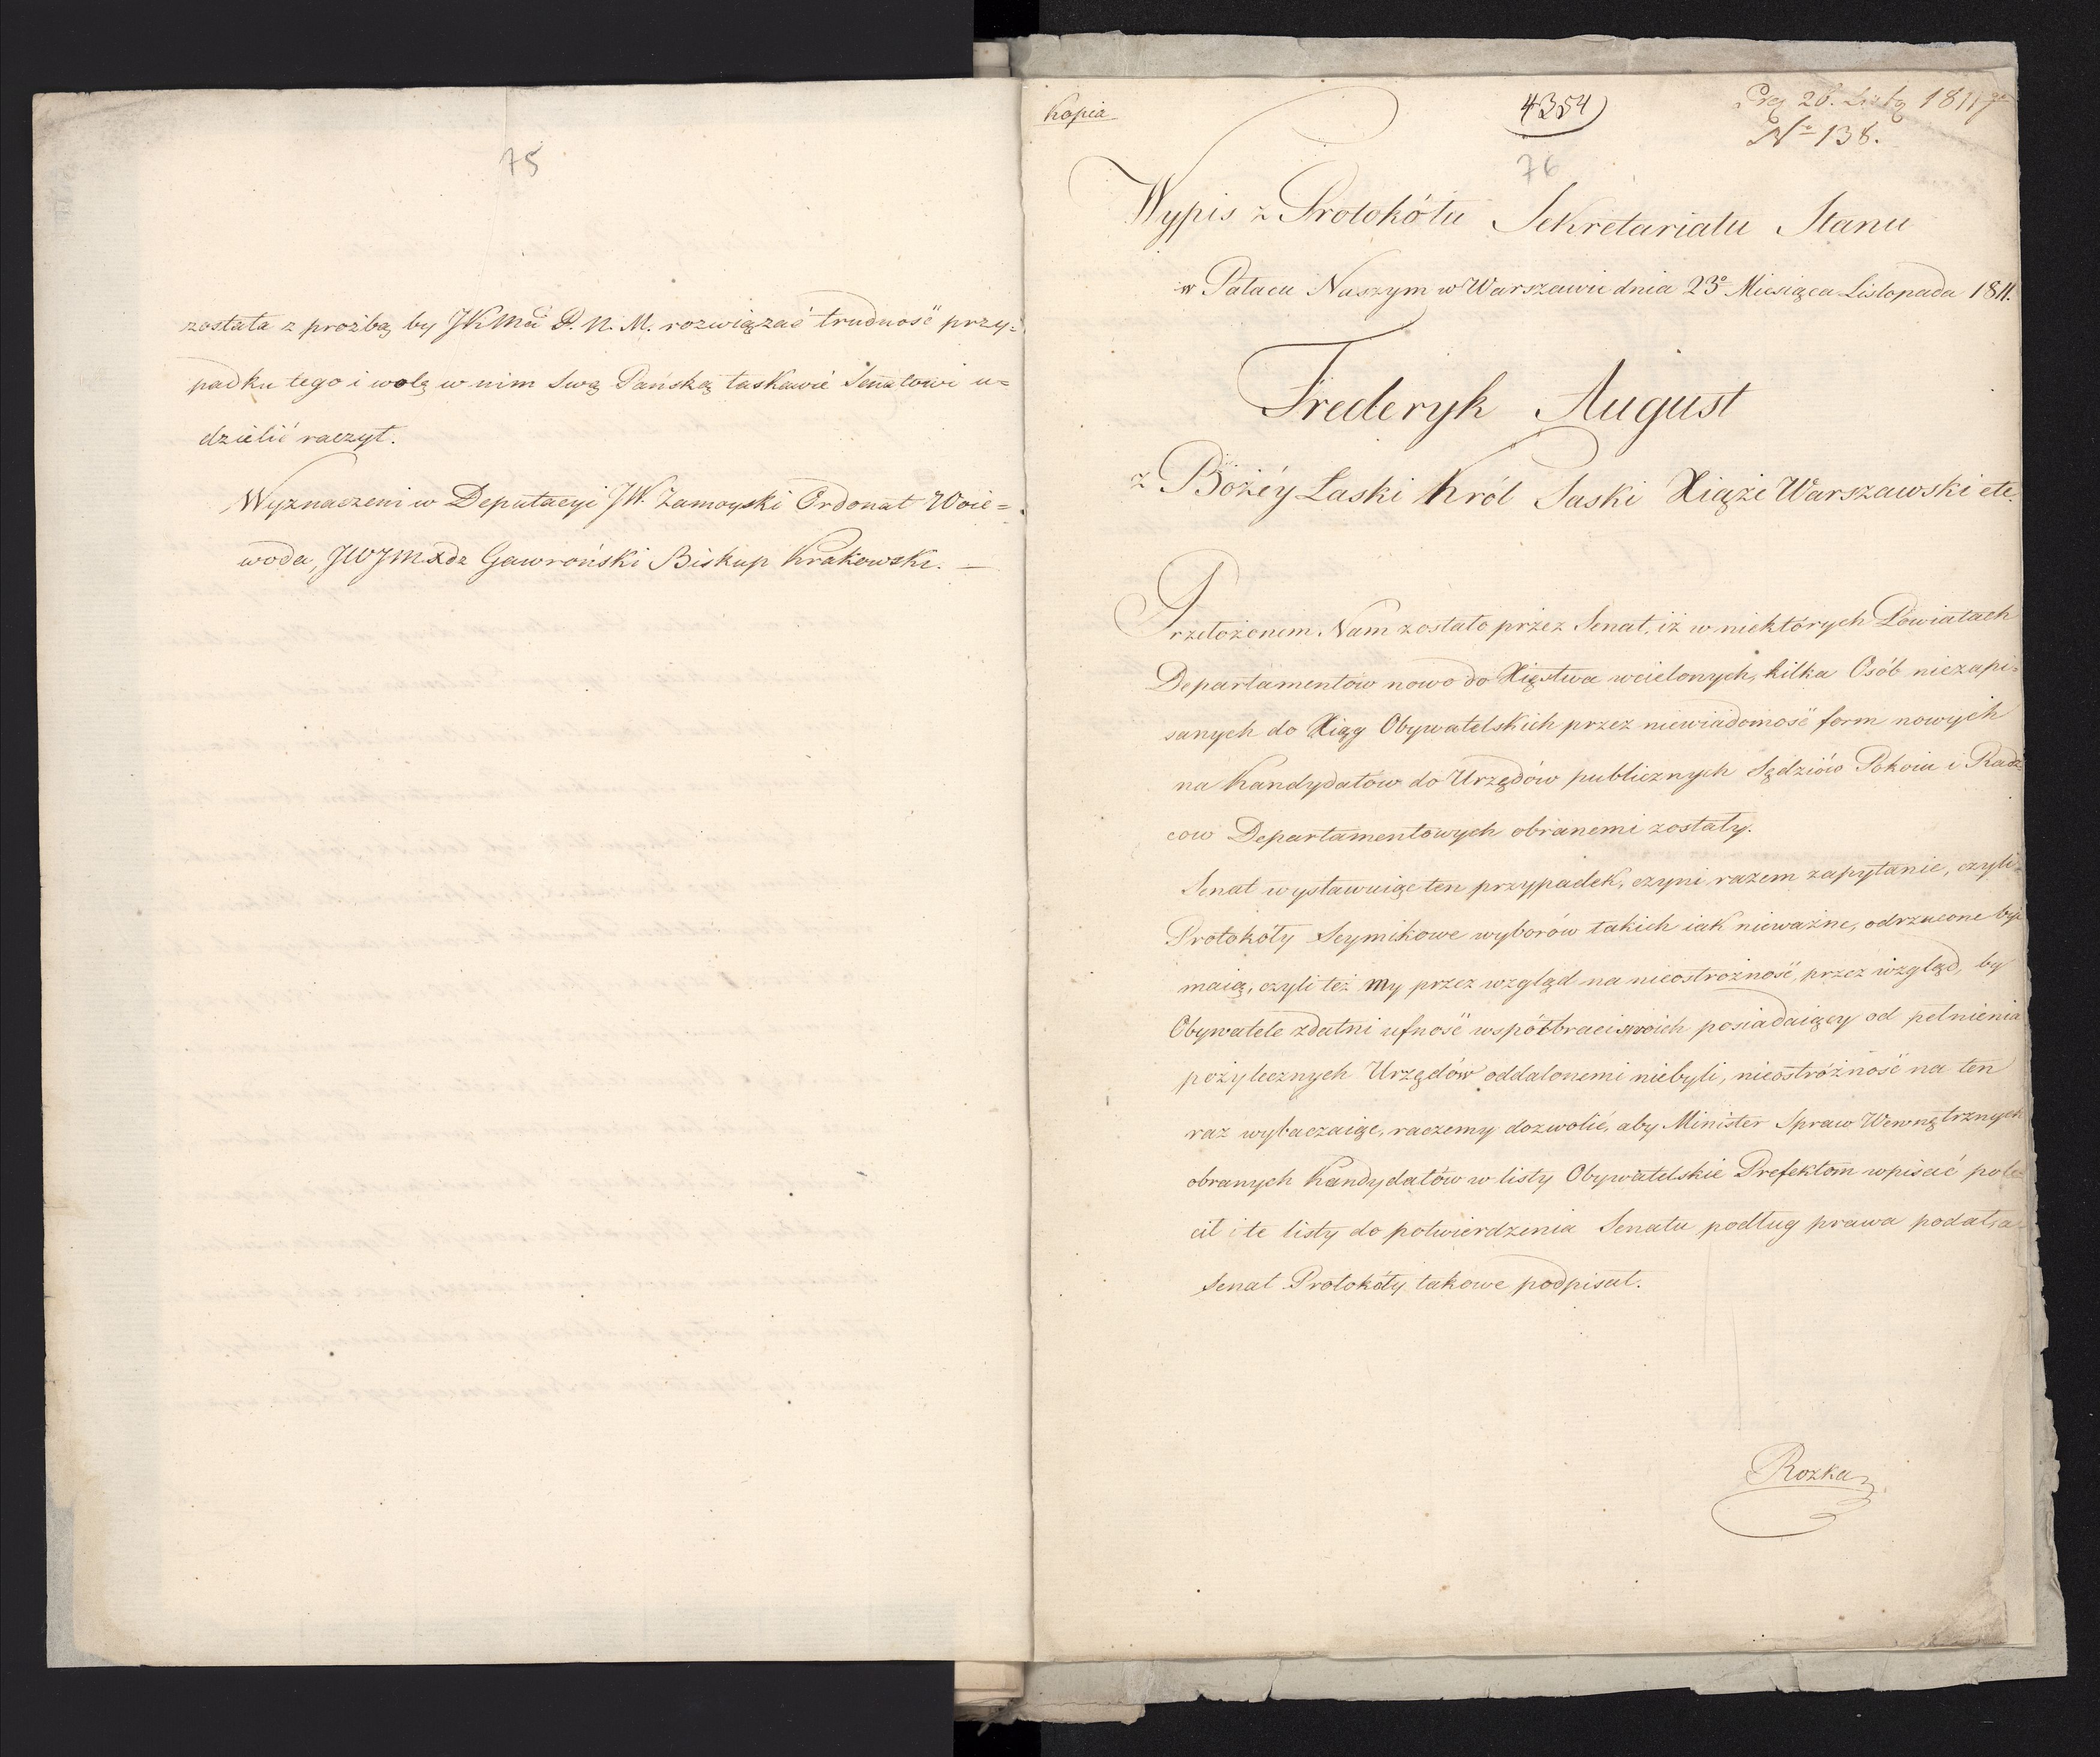 75
została z prozbą by JKMć P. N. M. rozwiązać trudność przy=
padku tego i wolą w nim swą Pańską łaskawie Senatowi u=
dzielić raczył.
Wyznaczeni w Deputacyi JW. Zamoyski Ordonat Woie=
woda, JWJMXdz Gawroński Biskup Krakowski. —
Kopia
4354
Prez 26. Listo 1811
No 138.
76
Wypis z Protokółu Sekretariatu Stanu
w Pałacu Naszym w Warszawie dnia 23o Miesiąca Listopada 1811.
Frederyk August
z Bożéy Łaski Król Saski Xiąże Warszawski etc.
Przełożonem Nam zostało przez Senat, iż w niektórych Powiatach
Departamentow nowo do Xięstwa wcielonych, kilka Osób niezapi=
sanych do Xiąg Obywatelskich przez niewiadomość form nowych
na Kandydatów do Urzędów publicznych Sędziów Pokoiu i Radz=
cow Departamentowych obranemi zostały.
Senat wystawuiąc ten przypadek, czyni razem zapytanie, czyli=
Protokóły Seymikowe wyborów takich iak nieważne, odrzucone być
maią, czyli też my przez wzgląd na nieostrożność, przez wzgląd, by
Obywatele zdatni ufność współbraci swoich posiadaiący od pełnienia
pożytecznych Urzędów oddalonemi niebyli, nieostróżność na ten
raz wybaczaiąc, raczemy dozwolić, aby Minister Spraw Wewnętrznych
obranych Kandydatów w listy Obywatelskie Prefektom wpisać pole=
cił i te listy do potwierdzenia Senatu podług prawa podał, a
Senat Protokóły takowe podpisał.
Rozka